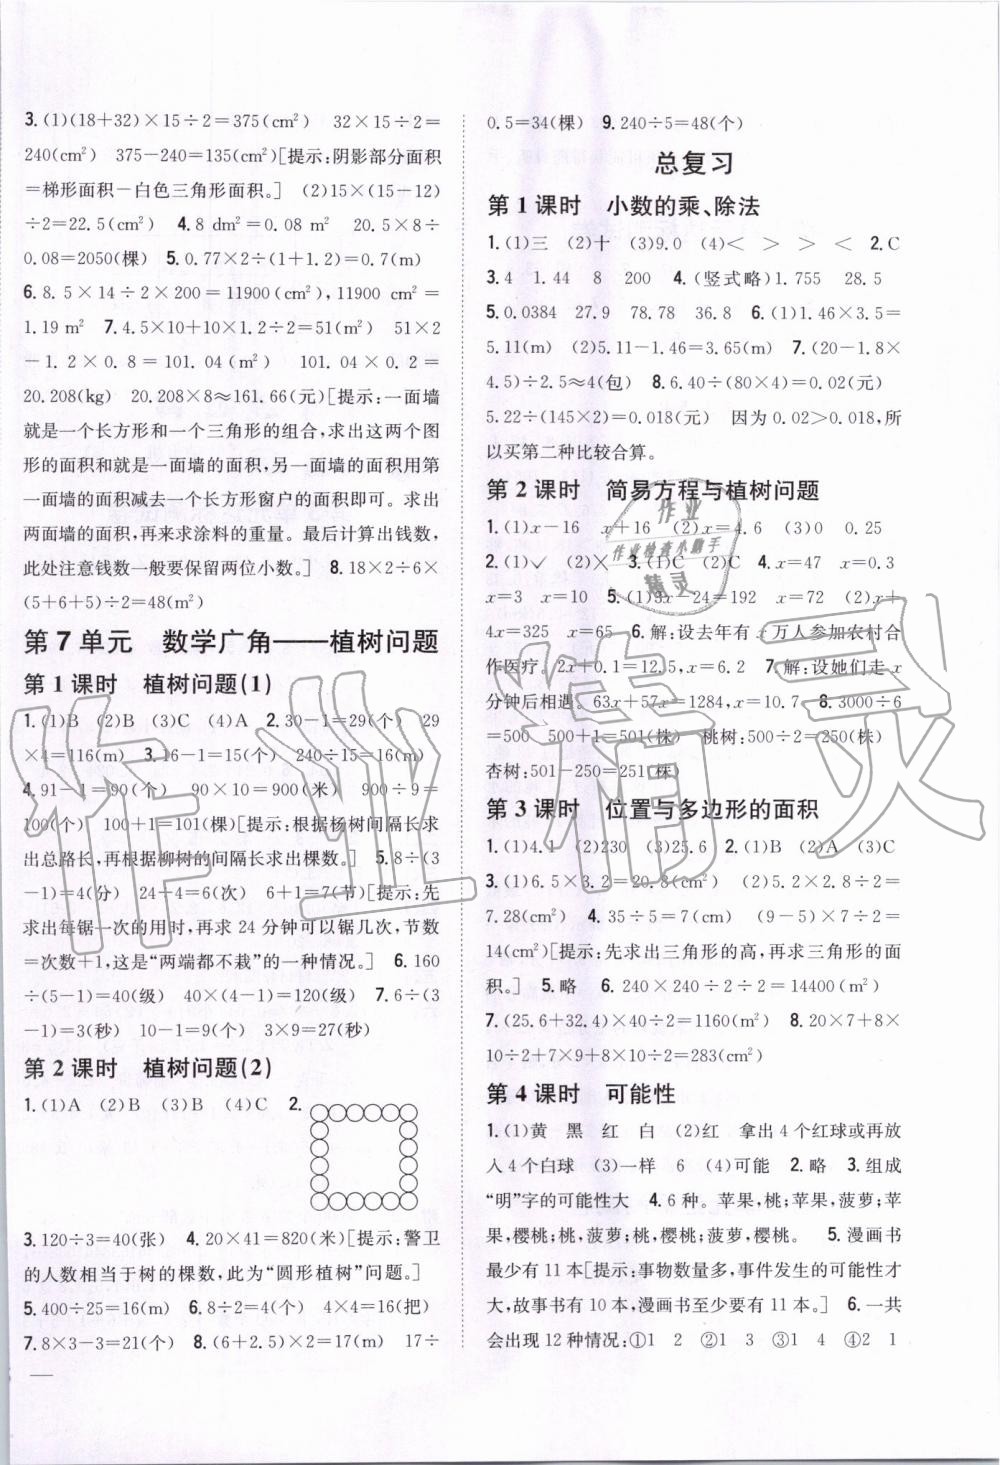 3.(1)(18+32)×15÷2=375(cm²) 32×15÷2=
240(cm²) 375-240=135(cm²)[提示:阴影部分面积
=梯形面积-白色三角形面积。] (2)15×(15-12)
÷2=22.5(cm²) 4.8 dm²=0.08 m² 20.5×8÷
0.08=2050(棵) 5.0.77×2÷(1+1.2)=0.7(m)
6.8.5×14÷2×200=11900(cm²),11900 cm²=
1.19 m² 7.4.5×10+10×1.2÷2=51(m²) 51×2
-1.2×0.8=101.04(m²) 101.04×0.2=
20.208(kg) 20.208×8≈161.66(元)[提示:一面墙
就是一个长方形和一个三角形的组合,求出这两个图
形的面积和就是一面墙的面积,另一面墙的面积用第
一面墙的面积减去一个长方形窗户的面积即可。求出
两面墙的面积,再来求涂料的重量。最后计算出钱数,
此处注意钱数一般要保留两位小数。] 8.18×2÷6×
(5+6+5)÷2=48(m²)
第7单元 数学广角——植树问题
第1课时 植树问题(1)
1.(1)B (2)B (3)C (4)A 2.30-1=29(个) 29
×4=116(m) 3.16-1=15(个) 240÷15=16(m)
4.91-1=90(个) 90×10=900(米) 900÷9=
100(个) 100+1=101(棵)[提示:根据杨树间隔长求
出总路长,再根据柳树的间隔长求出棵数。] 5.8÷(3
-1)=4(分) 24÷4=6(次) 6+1=7(节)[提示:先
求出每锯一次的用时,再求 24 分钟可以锯几次,节数
=次数+1,这是“两端都不栽”的一种情况。] 6.160
÷(5-1)=40(级) 40×(4-1)=120(级) 7.6÷(3
-1)=3(秒) 10-1=9(个) 3×9=27(秒)
第2课时 植树问题(2)
1.(1)A (2)B (3)B (4)C 2.
3.120÷3=40(张) 4.20×41=820(米)[提示:警卫
的人数相当于树的棵数,此为“圆形植树”问题。]
5.400÷25=16(m) 6.8÷2=4(个) 4×4=16(把)
7.8×3-3=21(个) 8.(6+2.5)×2=17(m) 17÷
0.5=34(棵) 9.240÷5=48(个)
总复习
第1课时 小数的乘、除法
1.(1)三 (2)十 (3)9.0 (4)< > > < 2.C
3.4 1.44 8 200 4.(竖式略)1.755 28.5
5.0.0384 27.9 78.78 36.8 6.(1)1.46×3.5=
5.11(m) (2)5.11-1.46=3.65(m) 7.(20-1.8×
4.5)÷2.5≈4(包) 8.6.40÷(80×4)=0.02(元)
5.22÷(145×2)=0.018(元) 因为 0.02>0.018,所
以买第二种比较合算。
第2课时 简易方程与植树问题
1.(1)x-16 x+16 (2)x=4.6 (3)0 0.25
2.(1)✓ (2)× 3.(1)C (2)C 4.x=47 x=0.3
x=3 x=10 5.(1)3x-24=192 x=72 (2)x+
4x=325 x=65 6.解:设去年有 x 万人参加农村合
作医疗。2x+0.1=12.5,x=6.2 7.解:设她们走 x
分钟后相遇。63x+57x=1284,x=10.7 8.3000÷6
=500 500+1=501(株) 桃树:500÷2=250(株)
杏树:501-250=251(株)
第3课时 位置与多边形的面积
1.(1)4.1 (2)230 (3)25.6 2.(1)B (2)A (3)C
3.(1)6.5×3.2=20.8(cm²) (2)5.2×2.8÷2=
7.28(cm²) 4.35÷5=7(cm) (9-5)×7÷2=
14(cm²)[提示:先求出三角形的高,再求三角形的面
积。] 5.略 6.240×240÷2÷2=14400(m²)
7.(25.6+32.4)×40÷2=1160(m²) 8.20×7+8×
10÷2+7×9+9×10÷2=283(cm²)
第4课时 可能性
1.(1)黄 黑 红 白 (2)红 拿出4个红球或再放
入4个白球 (3)一样 6 (4)可能 2.略 3.组成
“明”字的可能性大 4.6种。苹果,桃;苹果,菠萝;苹
果,樱桃;桃,菠萝;桃,樱桃;菠萝,樱桃。 5.漫画书
最少有 11 本[提示:事物数量多,事件发生的可能性才
大,故事书有 10 本,漫画书至少要有 11 本。] 6.一共
会出现 12 种情况:①1 2 ②1 3 ③1 4 ④2 1
作业
作业检查小助手
精灵
作业精灵